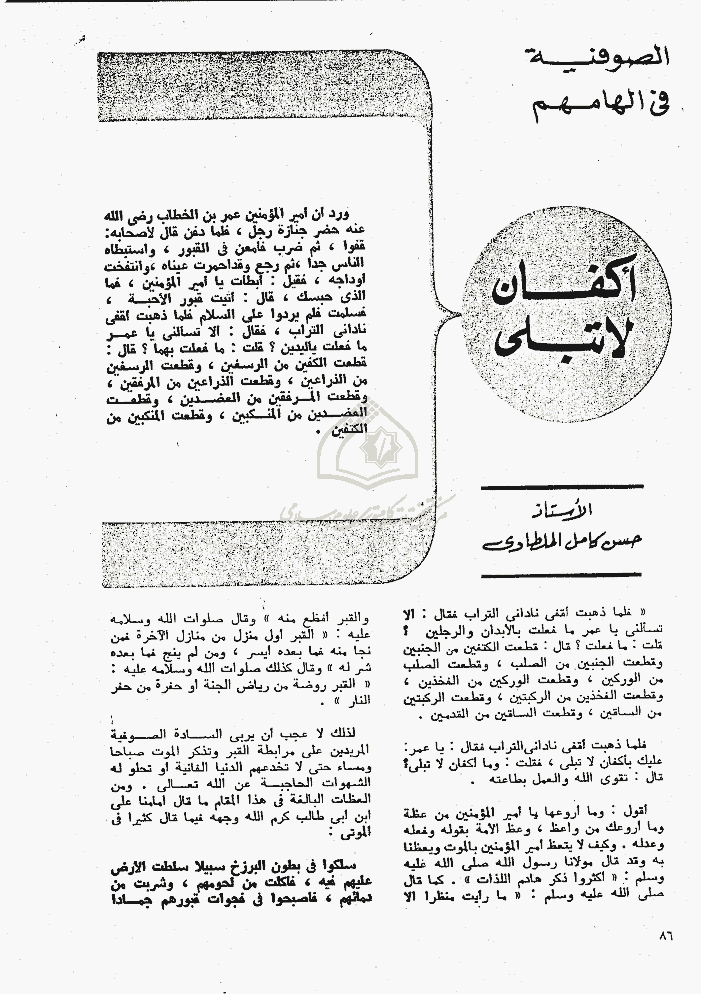 الصوفية
فى إلهامهم
أكفان
لا تبلى
الأستاذ
حسن كامل الملطاوى
ورد أن أمير المؤمنين عمر بن الخطاب رضى الله
عنه حضر جنازة رجل ، فلما دفن قال لأصحابه:
قفوا ، ثم ضرب فأمعن فى القبور ، واستبطأه
الناس جدا ،ثم رجع وقداحمرت عيناه ،وانتفخت
أوداجه ، فقيل : أبطأت يا أمير المؤمنين ، فما
الذى حبسك ، قال : أتيت قبور الأحبة ،
فسلمت فلم يردوا على السلام فلما ذهبت أقفى
نادانى التراب ، فقال : ألا تسألنى يا عمر
ما فعلت باليدين ؟ قلت : ما فعلت بهما ؟ قال :
قطعت الكفين من الرسغين ، وقطعت الرسغين
من الذراعين ، وقطعت الذراعين من المرفقين ،
وقطعت المرفقين من العضدين ، وقطعت
العضدين من المنكبين ، وقطعت المنكبين من
الكتفين .
« فلما ذهبت أقفى نادانى التراب فقال : ألا
تسألنى يا عمر ما فعلت بالأبدان والرجلين ؟
قلت : ما فعلت ؟ قال : قطعت الكتفين من الجنبين
وقطعت الجنبين من الصلب ، وقطعت الصلب
من الوركين ، وقطعت الوركين من الفخذين ،
وقطعت الفخذين من الركبتين ، وقطعت الركبتين
من الساقين ، وقطعت الساقين من القدمين .
فلما ذهبت أقفى نادانى التراب فقال : يا عمر:
عليك بأكفان لا تبلى ، فقلت : وما أكفان لا تبلى؟
قال : تقوى الله والعمل بطاعته .
أقول : وما أروعها يا أمير المؤمنين من عظة
وما أروعك من واعظ ، وعظ الأمة بقوله وفعله
وعدله . وكيف لا يتعظ أمير المؤمنين بالموت ويعظنا
به وقد قال مولانا رسول الله صلى الله عليه
وسلم : « أكثروا ذكر هادم اللذات » . كما قال
صلى الله عليه وسلم : « ما رأيت منظرا الا
والقبر أفظع منه » وقال صلوات الله وسلامه
عليه : « القبر أول منزل من منازل الآخرة فمن
نجا منه فما بعده أيسر ، ومن لم ينج فما بعده
شر له » وقال كذلك صلوات الله وسلامه عليه :
« القبر روضة من رياض الجنة أو حفرة من حفر
النار » .
لذلك لا عجب أن يربى السادة الصوفية
المريدين على مرابطة القبر وتذكر الموت صباحا
ومساء حتى لا تخدعهم الدنيا الفانية أو تحلو له
الشهوات الحاجبة عن الله تعالى . ومن
العظات البالغة فى هذا المقام ما قال امامنا على
ابن أبى طالب كرم الله وجهه فيما قال كثيرا فى
الموتى :
سلكوا فى بطون البرزخ سبيلا سلطت الأرض
عليهم فيه ، فأكلت من لحومهم ، وشربت من
دمائهم ، فأصبحوا فى فجوات قبورهم جمادا
٨٦